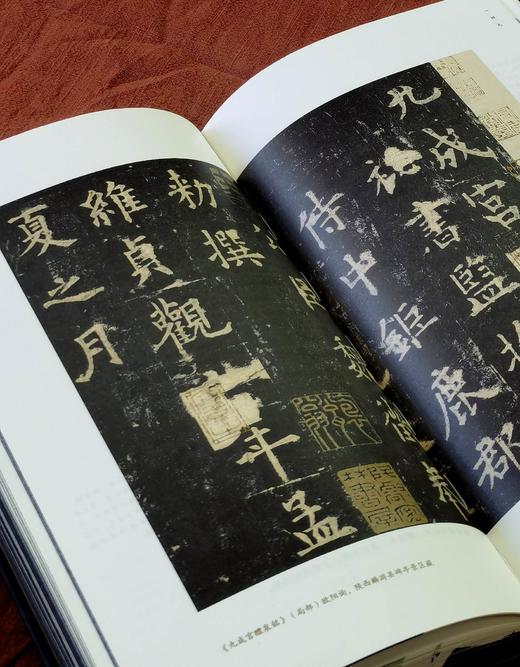 九成宮
秘書監
侍中鉅鹿郡
臣魏
勑撰
維貞觀六年孟
夏之月
《九成宫醴泉铭》（局部）欧阳询，陕西麟游县碑亭景区藏